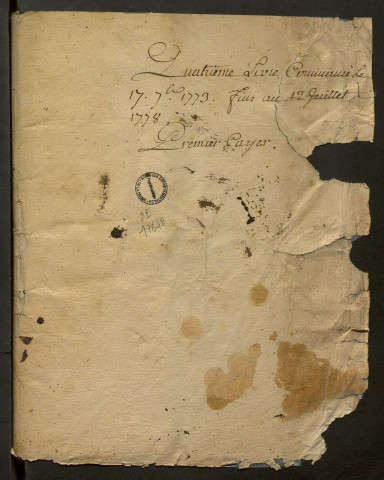 Quatrieme Livre Commencé le
17. 7.bre 1773. fini au 12 Juillet
1778.
Premier Cayer.
8E
17648